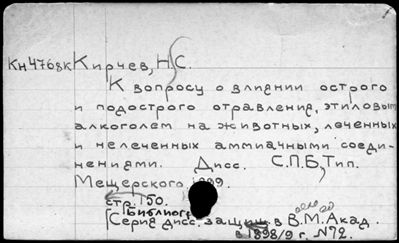 Кн4768к Кирчев, Н.С.
К вопросу о влиянии острого
и подострого отравления, этиловым
алкоголем на животных, леченных
и нелеченных аммиачными соеди-
нениями. Дисс. С.П.Б, Тип.
Мещерского, 1899.
стр. 150.
Библиогр
(Серия дисс. защищ. в В.М. Акад.
в 1898/9 г. №72.